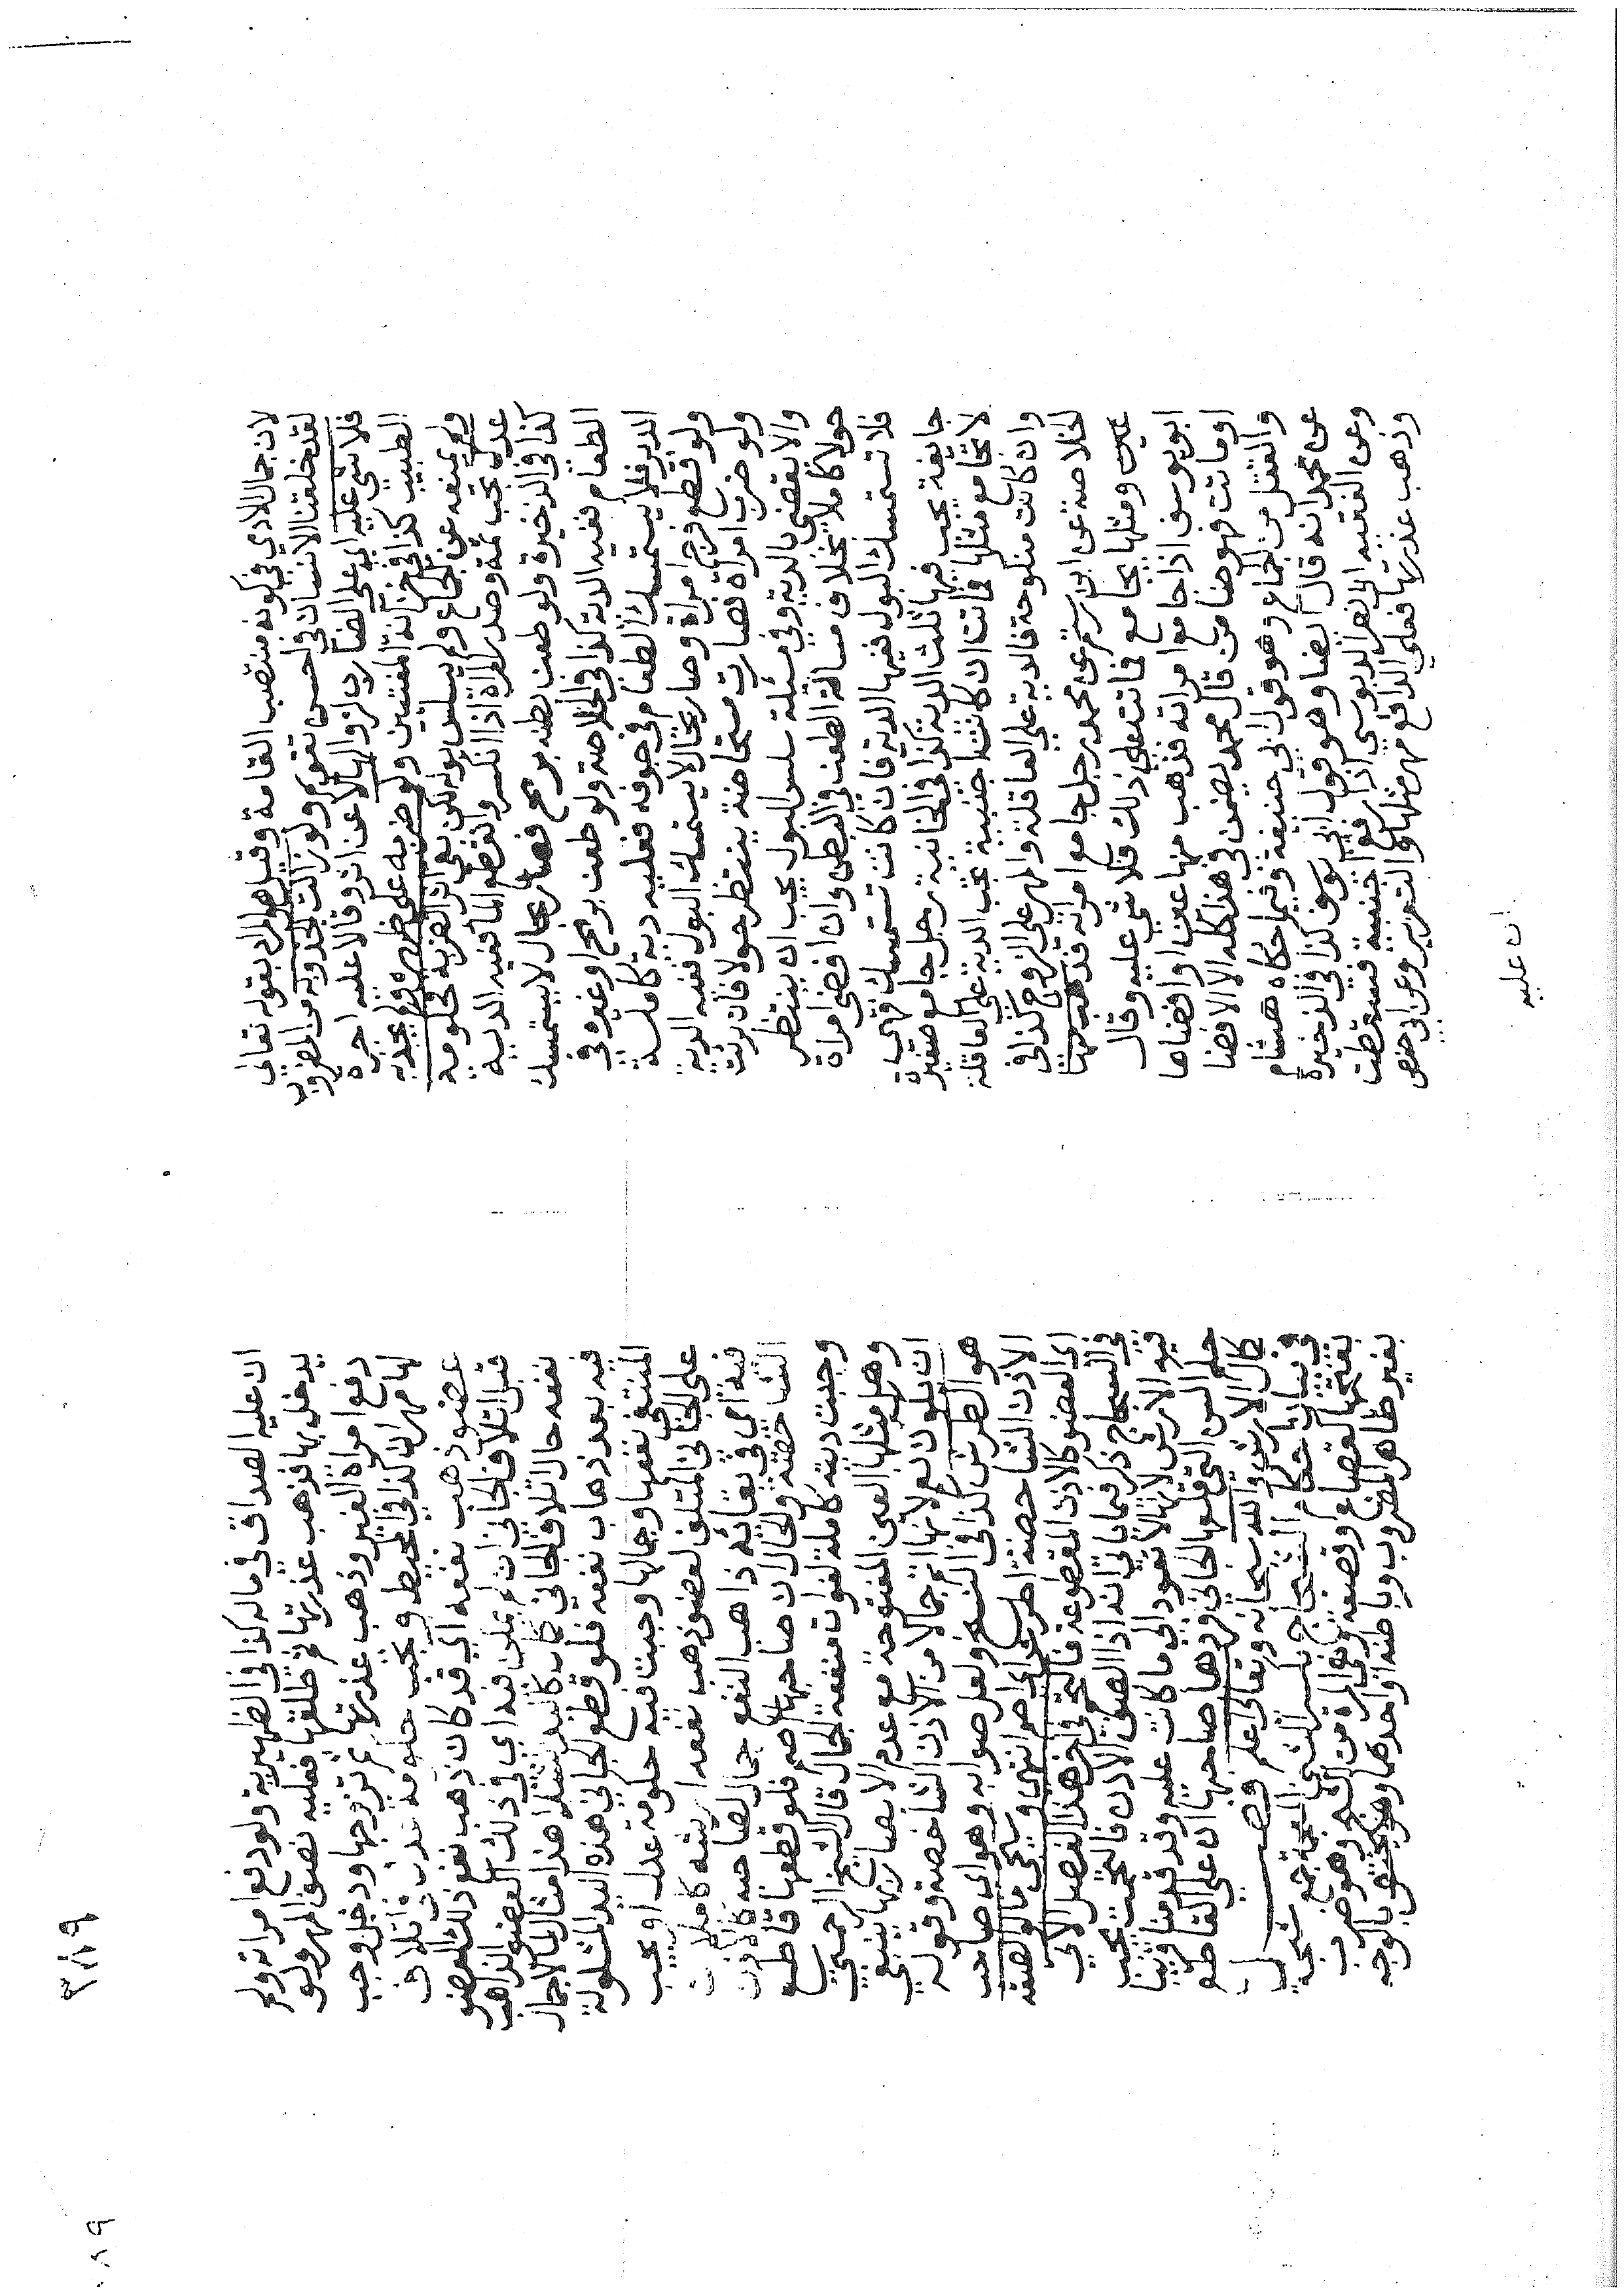 لان جمال الادمي في كونه منتصب القامة وقيل هو المراد بقوله تعالى
لقد خلقنا الانسان في احسن تقويم ولو زالت الحدوبة من المضروب
فلا شي عليه اي على الضارب لزوالها لا عن اثر وقالا عليه اجرة
الطبيب كذا في خزانة المفتيين ولو ضربه على ظهره فلم يحدبه
ولم يمنعه عن الجماع ولم يسلس بوله لكن بقي اثر الضربة فحكومة
عدل تجب ثمة وصدر المراة اذا انكسر وانقطع الما ففيه الدية
كذا في الذخيرة ولو طعن بطنه برمح فصار بحال لا يستمسك
الطعام ففيه الدية كذا في الخلاصة ولو طعن برمح او غيره في
الدبر فلا يستمسك الطعام في جوفه فعليه دية كاملة
ولو قطع فرج امراة وصار بحال لا يستمسك البول ففيه الدية
ولو ضرب امراة فصارت مستحاضة ينتظر حولا فان برئت
والا يقضي بالدية وفي مسئلة سلس البول يجب ان ينتظر
حولا كاملا بخلاف مسالة الطعن في البطن وان افضى امراة
فلا تستمسك البول ففيها الدية فان كانت تستمسك فهي
جايفة يجب فيها ثلث الدية كذا في الخانية رجل جامع صغيرة
لا يجامع مثلها فماتت ان كانت اجنبية تجب الدية على العاقلة
وان كانت منكوحة فالدية على العاقلة والمهر على الزوج كذا في
الخلاصة عن ابن رستم عن محمد رجل جامع امراته فذهب منها
عين ومثلها يجامع فماتت من ذلك فلا شي عليه وقال
ابو يوسف اذا جامع امراته فذهب منها عين او افضاها
او ماتت فهو ضامن قال محمد يضمن في هذا كله الا الافضا
والقتل من الجماع وهو قول ابي حنيفة وفيما حكاه هشام
عن محمد انه قال ايضا وهو قول ابي يوسف كذا في الذخيرة
وعن الفقيه ابي نصر الدبوسي اذا دفع اجنبية فسقطت
وذهب عذرتها فعلى الدافع مهر مثلها والتعزير وعن ابي حفص
ان عليه
ان عليه الصداق في ماله كذا في الظهيرية ولو دفع امراته ولم
يدخل بها فذهب عذرتها ثم طلقها فعليه نصف المهر ولو
دفع امراة الغير وذهب عذرتها ثم تزوجها ودخل وجب
لها مهران كذا في المحيط وتجب حكومة عدل في اتلاف
عضو ذهب نفعه اي قد كان ذهب نفع ذلك العضو
قبل اتلاف الجاني ان لم يكن فيه اي في ذلك العضو الذاهب
نفعه حال اتلاف الجاني جمال كاليد الشلا هذا مثال لما لا جمال
فيه بعد ذهاب نفعه فلو قطع الجاني هذه اليد المشلولة
المنتفي نفعها وجمالها وجبت فيه حكومة عدل او يجب
على الجاني المتلف لعضو ذهب نفعه ارشه كاملا ان كان
فيه اي في بقائه ذاهب النفع جمال لصاحبه كالاذن
الشاخصة والحال ان صاحبها اصم فلو قطعها قاطع
وجبت دية كاملة لفوات منفعة الجمال قال الشيخ الرحمتي
وهل مثلها العين المفتوحة مع عدم الابصار بها ينبغي
ان يكون نعم لانها اتم جمالا من الاذن الشاخصة وقوله
هو الطرش كذا في النسخ ولعل صوابه وهو اي صاحب
الاذن الشاخصة اطرش اي اصم انتهى وسيجي ما لو الصقه
اي العضو كالاذن المقطوعة فالتحم في اخر هذا الفصل الاتي
في الشجاج ذكر فيما ياتي انه اذا الصق الاذن فالتحمت يجب
فيه الارش لانها لا تعود الى ما كانت عليه وقد قدمنا قريبا
حكم السن التي قلعها الجاني وردها صاحبها ان على القاطع
كمال الارش والله سبحانه وتعالى اعلم فصــــل
في بيان احكام الشجاج بكسر الشين المعجمة جمع شجة
بفتحها كقصاع وقصعة وهي المرة من الشج وهو ضرب
بغير ظاهر المضروب وباطنه او احدهما ويختص بالوجه
٣٨٩